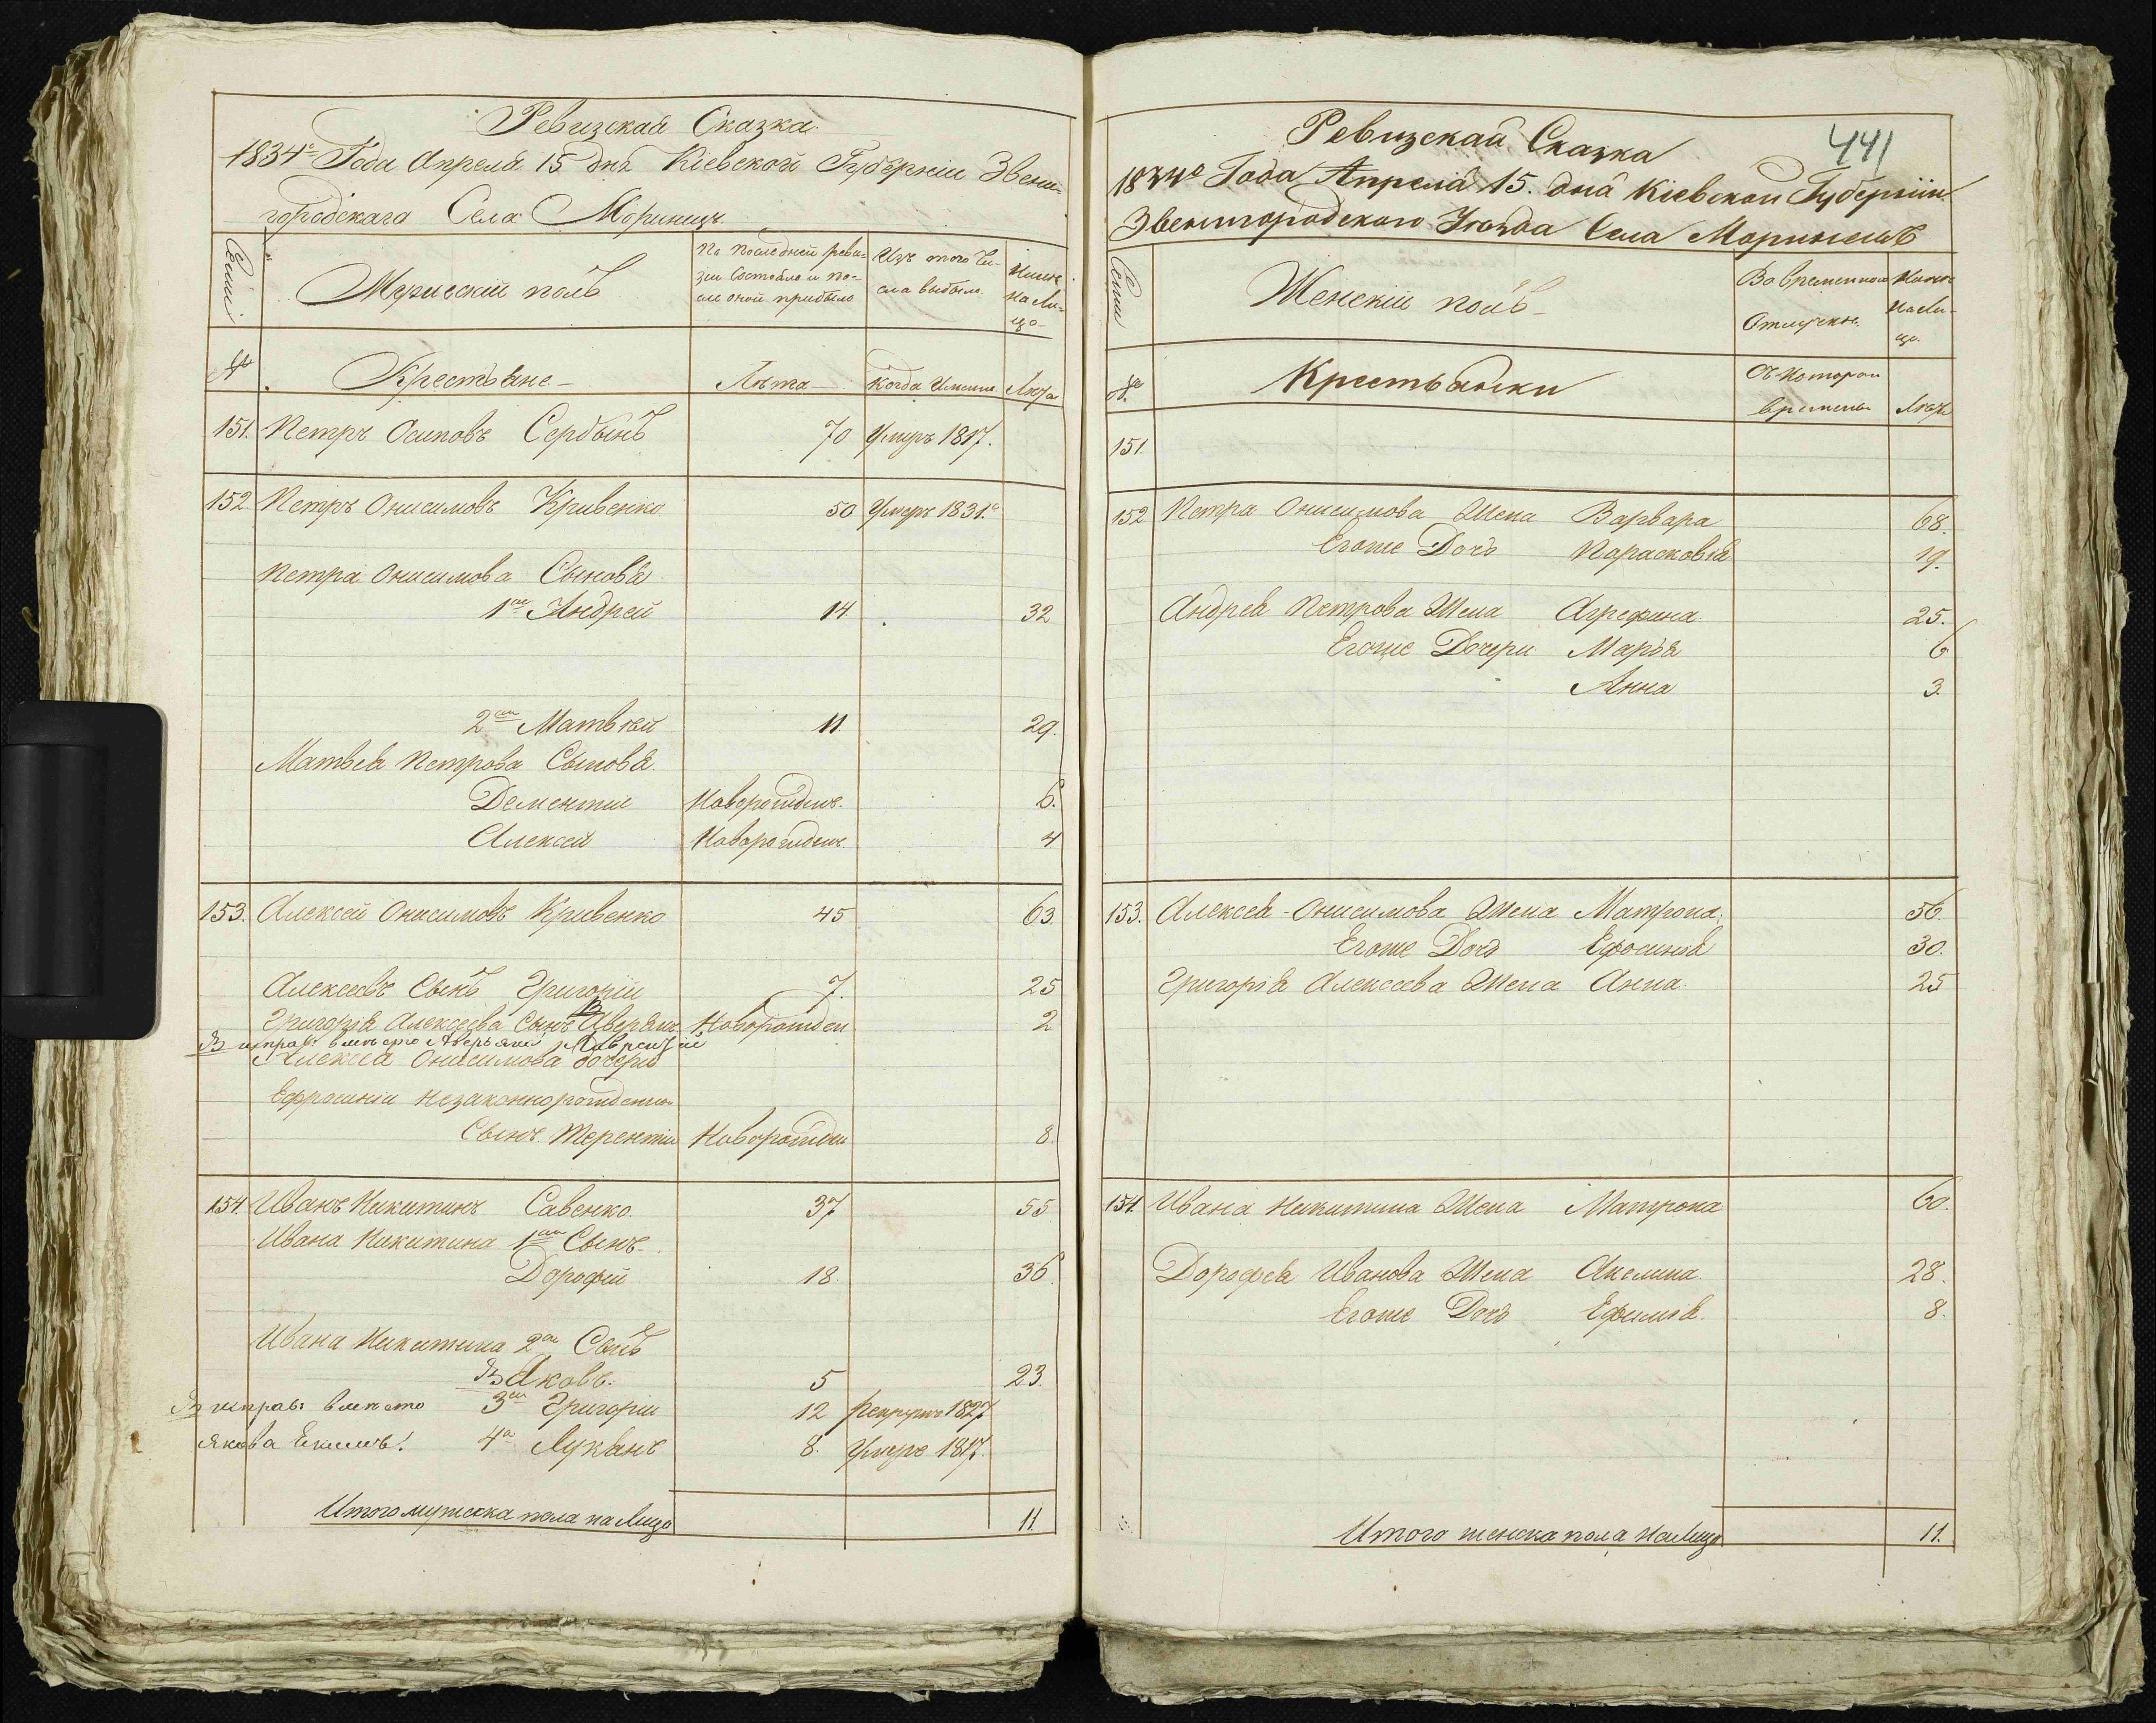 Ревизская Сказка.
1834г Года Апреля 15 дня Кіевской Губерніи Звени-
городскага Села Моринцъ
Семьи
Мужескій полъ
По последней реви-
зіи состояло и по-
сле оной прибыло
Изъ того чи-
сла выбыло
Ныне
на ли-
цо
№
Крестьяне
Лѣта
Когда Именно
Лѣта
151. Петръ Осиповъ Сербынъ 70 Умеръ 1817.
152. Петръ Онисимовъ Кривенко 50 Умеръ 1831.г
Петра Онисимова Сыновья
1й Андрей 14 32
2й Матвѣй 11. 29.
Матвея Петрова Сыновья
Дементій Новорожденъ. 6.
Алексей Новорожденъ 4
153. Алексей Онисимовъ Кривенко 45 63.
Алексеевъ Сынъ Григорій 7. 25
Григорія Алексеева Сынъ Аверьянъ Новорожден 2
исправ: вместо Аверьяна Лаврентій
Алексея Онисимова дочери
Ефросиніи незаконнорожденны
Сынъ Терентій Новорожден 8.
154. Иванъ Никитинъ Савенко. 37 55
Ивана Никитина 1й Сынъ
Дорофей 18. 36.
Ивана Никитина 2й Сынъ
Яковъ. 5 23.
исправ: вместо 3й Григорій 12 рекрутъ 1827
якова Екимъ! 4й Лукянъ 8. Умеръ 1817.
Итого мужеска пола на лицо 11.
441
Ревизская Сказка
1834г Года Апреля 15. дня Кіевской Губерніи
Звенигородскаго Уезда Села Моринецъ
Семьи
Женскій полъ
Во временной
Отлучке.
Ныне
на ли-
цо.
№
Крестьянки
Съ которои
времены
Лѣта
151.
152 Петра Онисимова Жена Варвара 68.
Егоже Дочь Парасковія 19.
Андрея Петрова Жена Агрефина. 25.
Егоже Дочери Марія 6
Анна 3.
153. Алексея Онисимова Жена Матрона. 56.
Егоже Дочь Ефосинія 30.
Григорія Алексеева Жена Анна. 25
154. Ивана Никитина Жена Матрона 60.
Дорофея Иванова Жена Акелина. 28.
Егоже Дочь Ефимія. 8.
Итого женска пола на лицо 11.